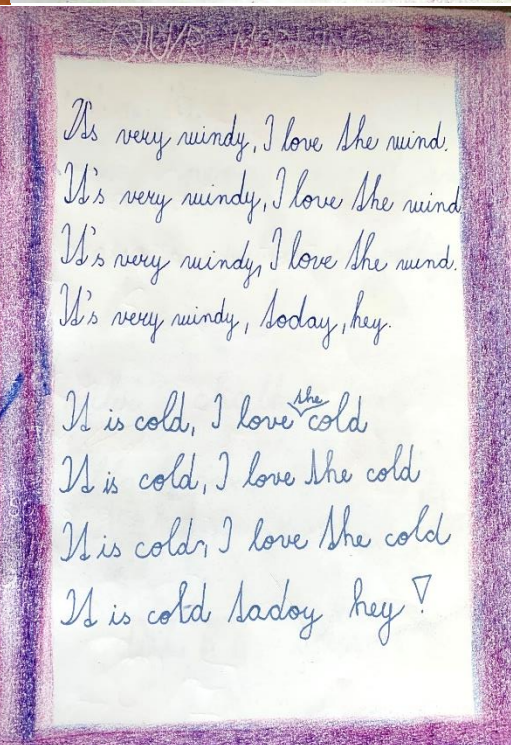 OUR
It's very windy, I love the wind.
It's very windy, I love the wind
It's very windy, I love the wind.
It's very windy, today, hey.
It is cold, I love the cold
It is cold, I love the cold
It is cold, I love the cold
It is cold tadoy hey!